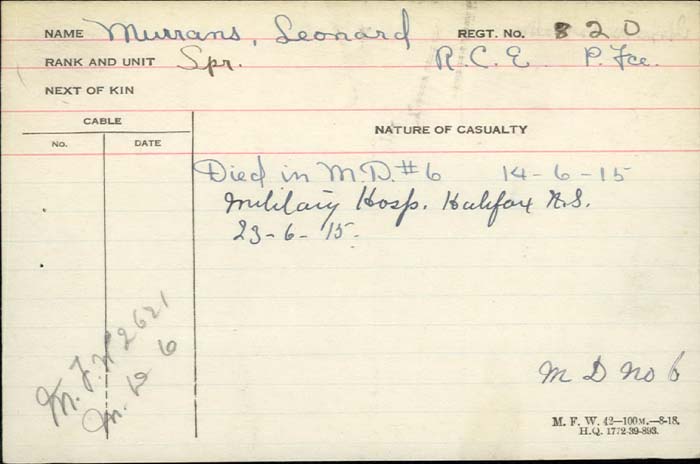 NAME Murrans, Leonard REGT. No. 820
RANK AND UNIT Spr. R.C.E. P. Fce.
NEXT OF KIN
CABLE
No. DATE
NATURE OF CASUALTY
Died in M.D. #6 14-6-15
Military Hosp. Halifax N.S.
23-6-15.
M.F.W 2621
M. D 6
M D No 6
M. F. W. 42—100M.—8-18.
H.Q. 1772-39-893.